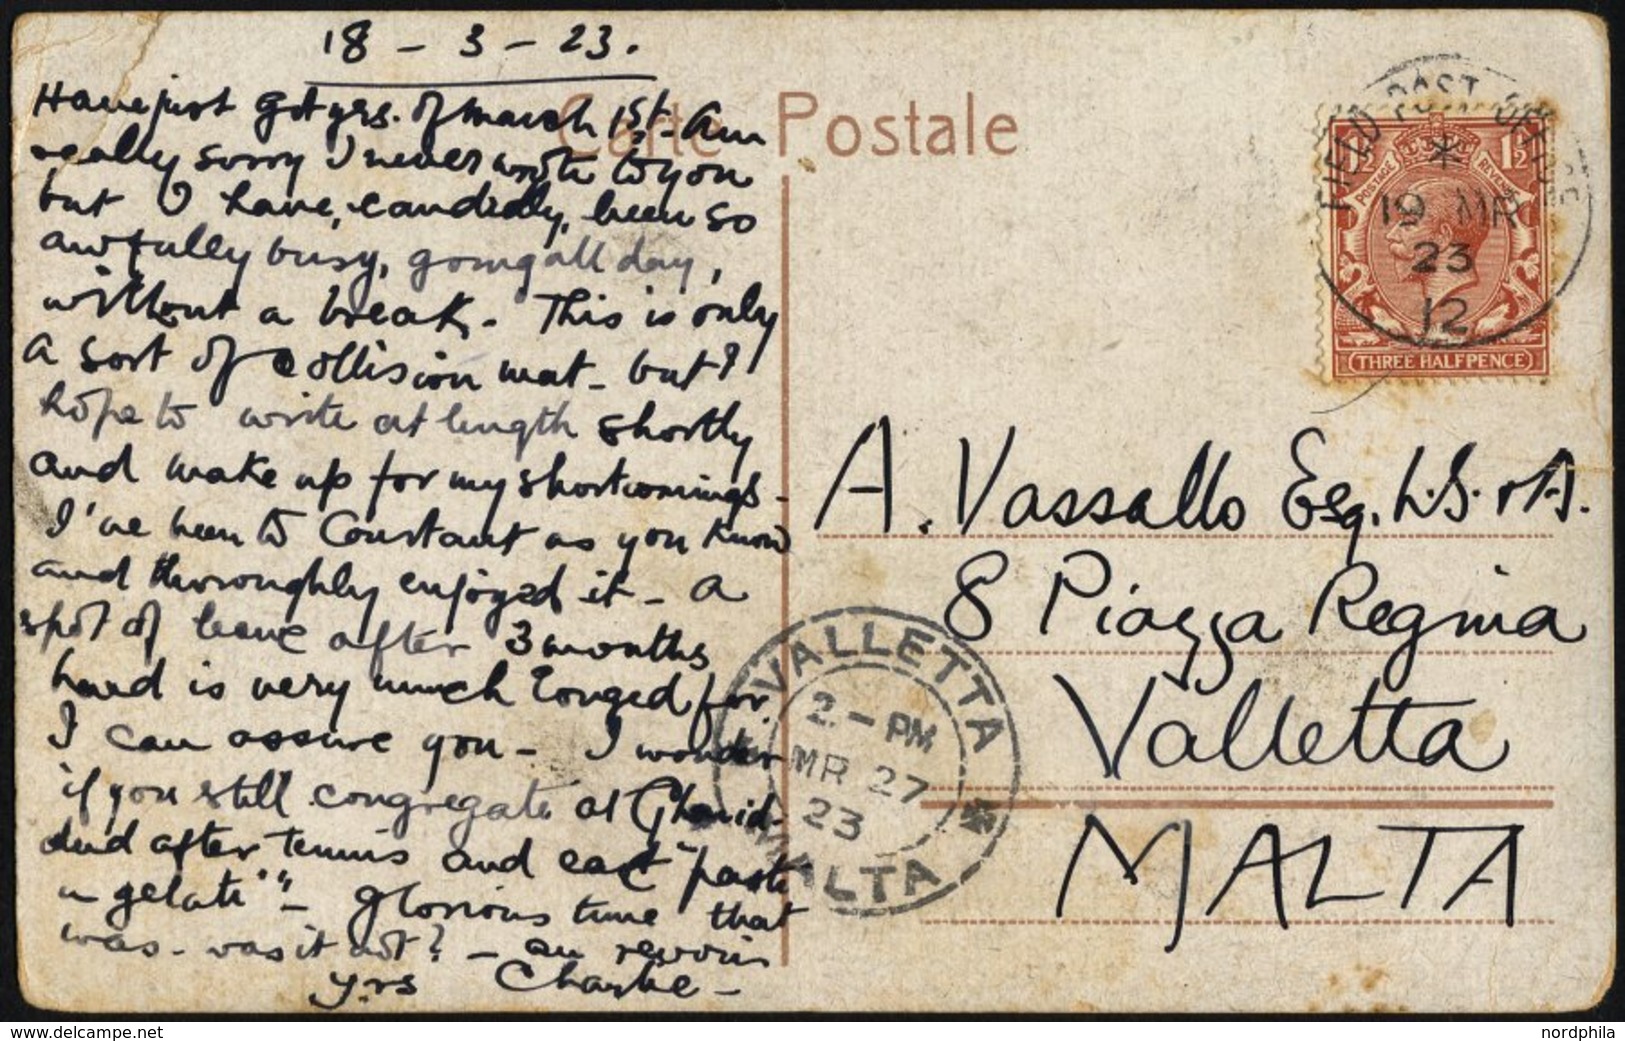 18 - 3 - 23.
Have just got yrs. of March 1st - Am
really sorry I never wrote to you
but I have, candidly, been so
awfully busy, going all day,
without a break. This is only
a sort of collision mat - but I
hope to write at length shortly
and make up for my shortcomings -
I've been to Constant as you know
and thoroughly enjoyed it - a
spot of leave after 3 months
hard is very much longed for
I can assure you - I wonder
if you still congregate at
And after tennis and eat "paste
e gelati" - glorious time that
was - was it not? - au revoir
yrs Charlie -
Carte Postale
FIELD POST OFFICE
19 MR
23
12
POSTAGE REVENUE
1½ 1½
THREE HALFPENCE
A. Vassallo Esq. L.S. & A.
8 Piazza Regina
Valletta
MALTA
VALLETTA
2 - PM
MR 27
23
MALTA
nordphila
www.delcampe.net